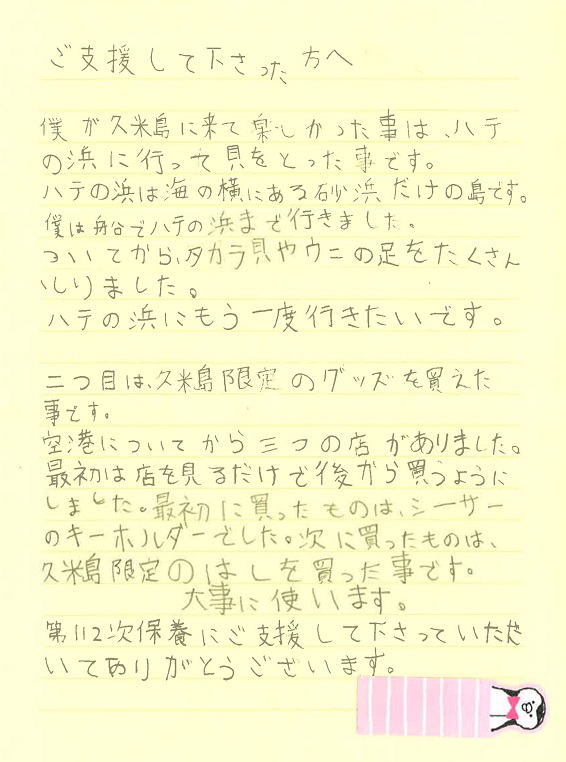 ご支援して下さった方へ
僕が久米島に来て楽しかった事は、ハテ
の浜に行って貝をとった事です。
ハテの浜は海の横にある砂浜だけの島です。
僕は船でハテの浜まで行きました。
ついてから、タカラ貝やウニの足をたくさん
ひろいました。
ハテの浜にもう一度行きたいです。
二つ目は、久米島限定のグッズを買えた
事です。
空港についてから三つの店がありました。
最初は店を見るだけで後から買うように
しました。最初に買ったものは、シーサー
のキーホルダーでした。次に買ったものは、
久米島限定のはしを買った事です。
大事に使います。
第112次保養にご支援して下さっていただ
いてありがとうございます。